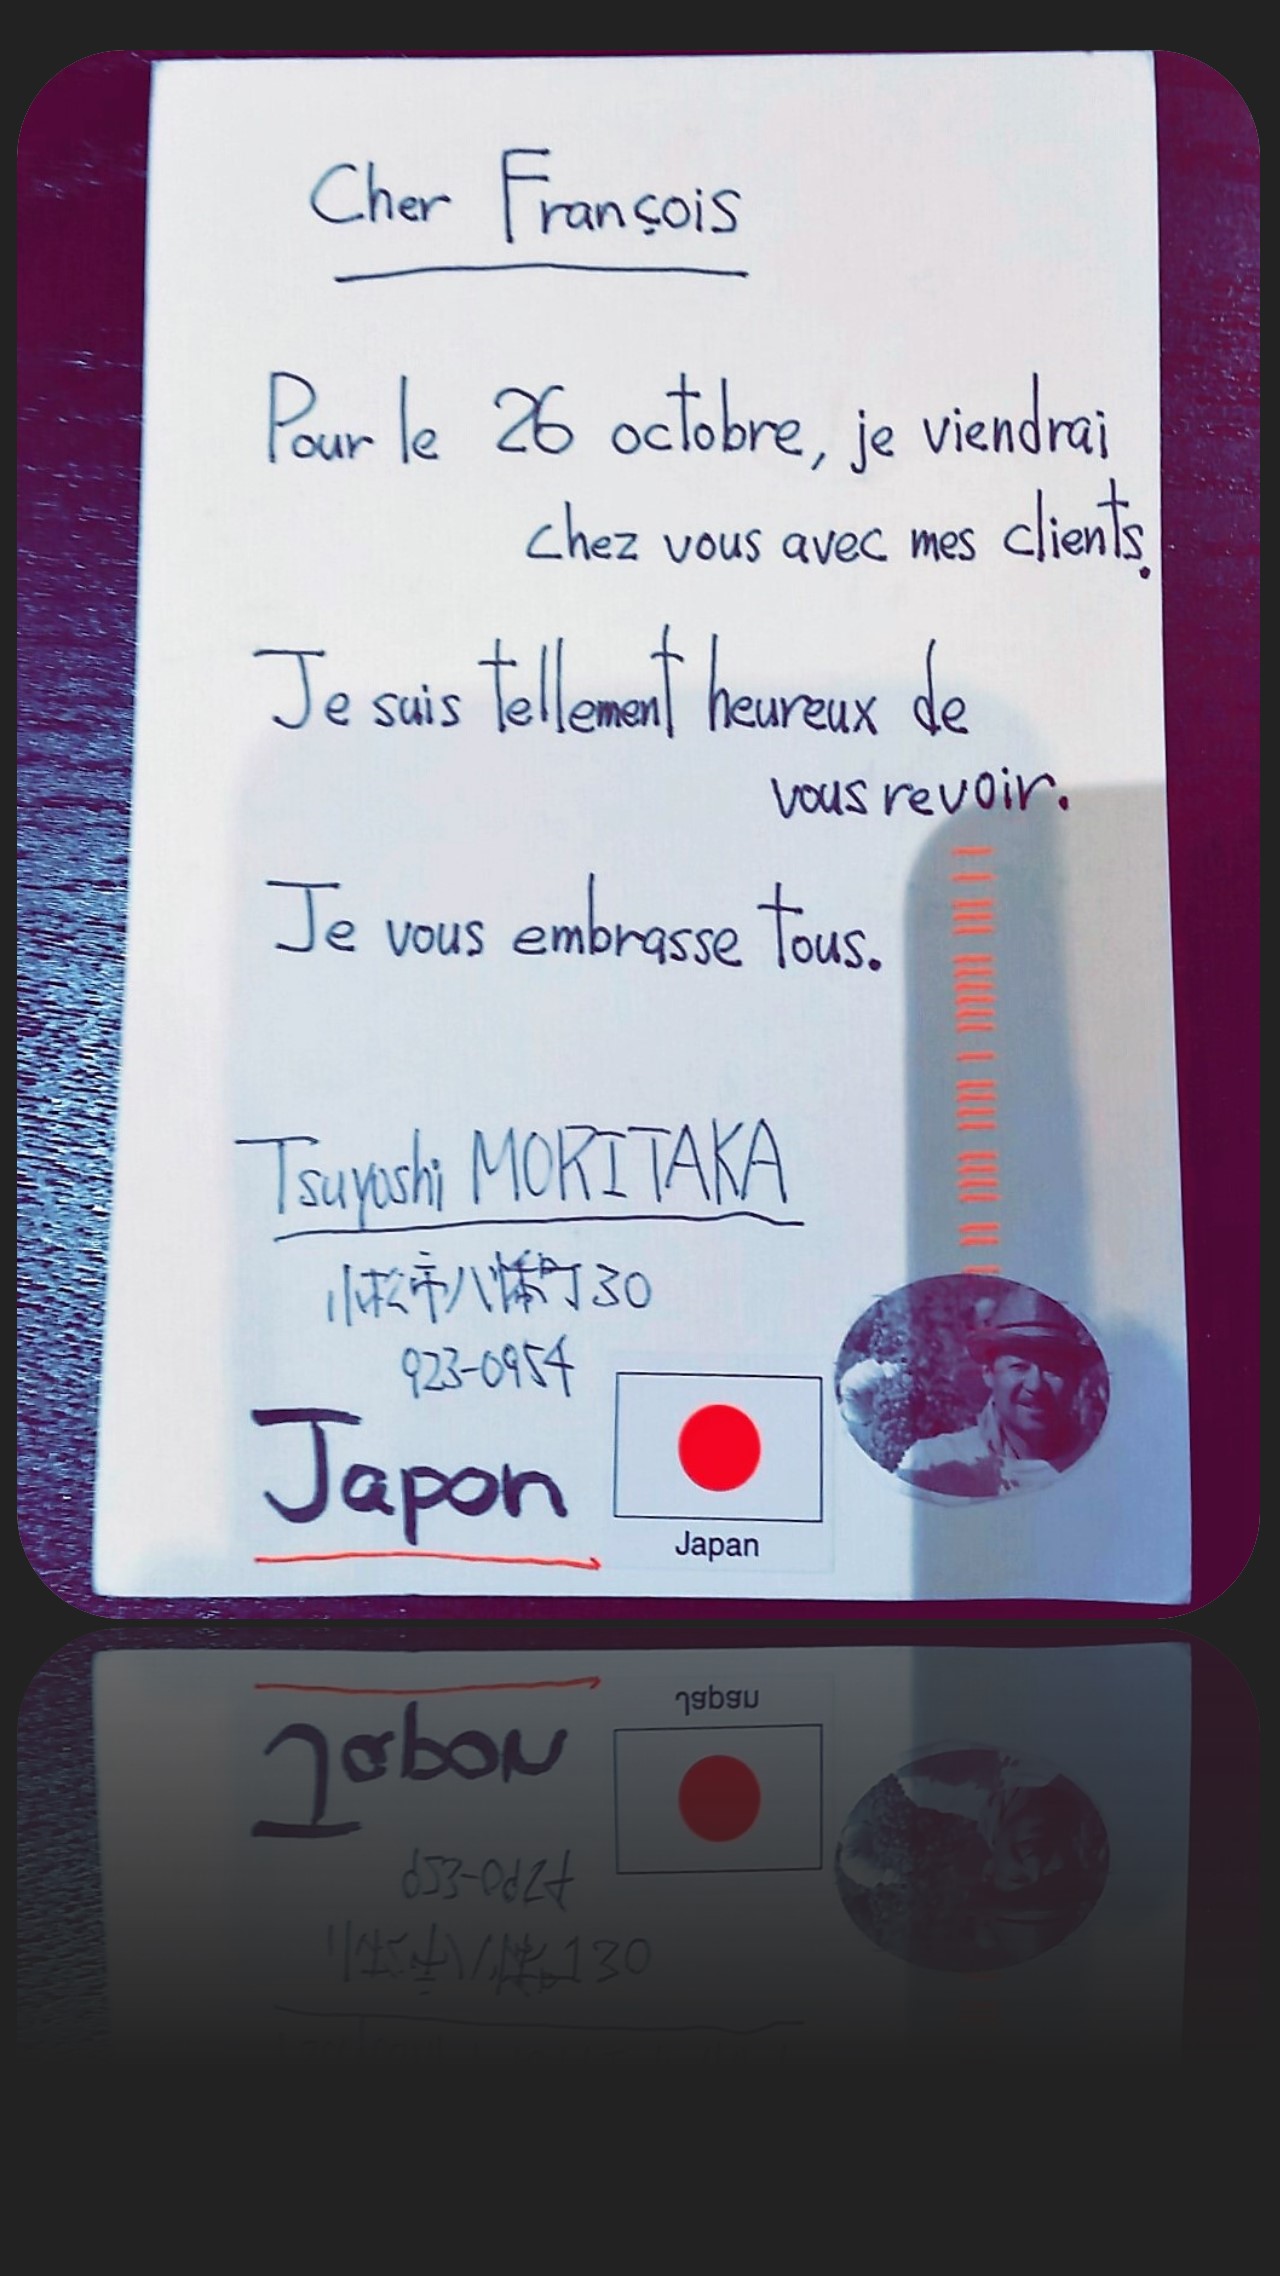 Cher François
Pour le 26 octobre, je viendrai
chez vous avec mes clients.
Je suis tellement heureux de
vous revoir.
Je vous embrasse tous.
Tsuyoshi MORITAKA
小松市八幡町30
923-0954
Japon
Japan